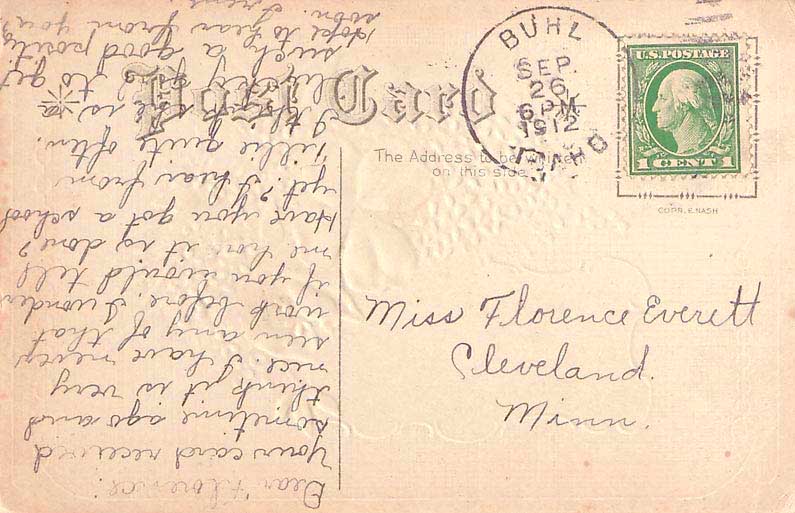 Post Card
BUHL
SEP.
26
6 PM
1912
IDAHO
U.S. POSTAGE
1 CENT 1
The Address to be written
on this side
COPR. E. NASH
Miss Florence Everett
Cleveland.
Minn.
Dear Florence:
Your card received
sometime ago and
think it is very
nice. I have never
seen any of that
work before. I wonder
if you would tell
me how it is done?
Have you got a school
yet? I hear from
Tillie quite often.
I think she is
lucky to get
such a good position
Hope to hear from you
soon.